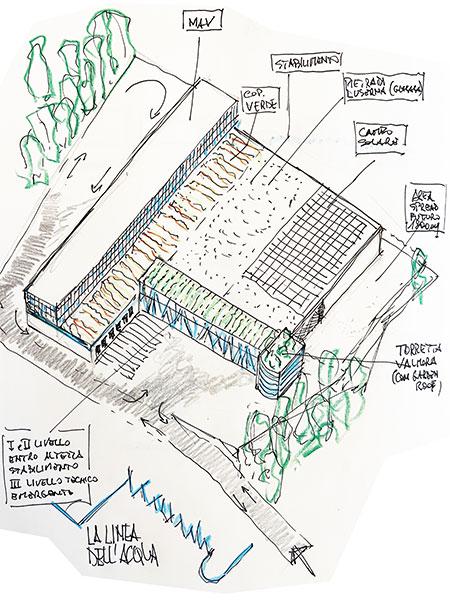 MAV
STABILIMENTO
COP.
VERDE
PIETRA DI
LUSERNA (GHIAIA)
CAMPO
SOLARE
AREA
FUTURO
TORRETTA
VALMORA
(CON GARDEN
ROOF)
I e II LIVELLO
ENTRO ALTEZZA
STABILIMENTO
III LIVELLO TECNICO
EMERGENTE
LA LINEA
DELL'ACQUA